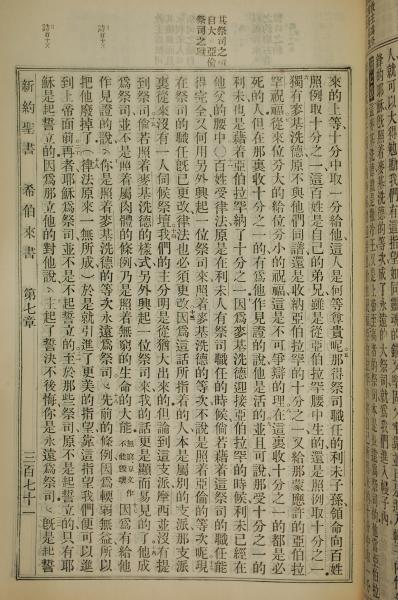 其祭司之
自大亞倫
祭司之職
來的上等十分中取一分給他這人是何等尊貴呢那得祭司職任的利未子孫領命向百姓
照例取十分之一這百姓是自己的弟兄雖是從亞伯拉罕腰中生的還是照例取十分之一
獨有麥基洗德原不與他們同譜還是收納亞伯拉罕的十分之一又給那蒙應許的亞伯拉
罕祝福從來位分大的給位分小的祝福這是不可爭辯的理在這裏收十分之一的都是必
死的人但在那裏收十分之一的有爲他作見證的說他是活的並且可說那受十分之一的
利未也是藉着亞伯拉罕納了十分之一因爲麥基洗德迎接亞伯拉罕的時候利未已經在
他父的腰中○百姓受律法原是在利未人有祭司職任的時候倘若藉着這祭司的職任能
得完全又何用另外興起一位祭司來照着麥基洗德的等次不說是照着亞倫的等次呢現
在祭司的職任旣已更改律法也必須更改因爲這話所指着的人本是屬別的支派那支派
裏從來沒有一人伺候祭壇我們的主分明是從猶大出來的但論到這支派摩西並沒有提
到祭司倘若照着麥基洗德的樣式另外興起一位祭司來我的話更是顯而易見的了他成
爲祭司並不是照着屬肉體的條例乃是照着無窮的生命的大能無窮原文作不能毀壞因爲有給他
作見證的說你是照着麥基洗德的等次永遠爲祭司先前的條例因爲輭弱無益所以
把他廢掉了律法原來一無所成於是就引進了更美的指望靠這指望我們便可以進
到上帝面前再者耶穌爲祭司並不是不起誓立的至於那些祭司原不是起誓立的只有耶
穌是起誓立的因爲那立他的對他說主起了誓決不後悔你是永遠爲祭司旣是起誓
新約聖書 希伯來書 第七章 三百七十一